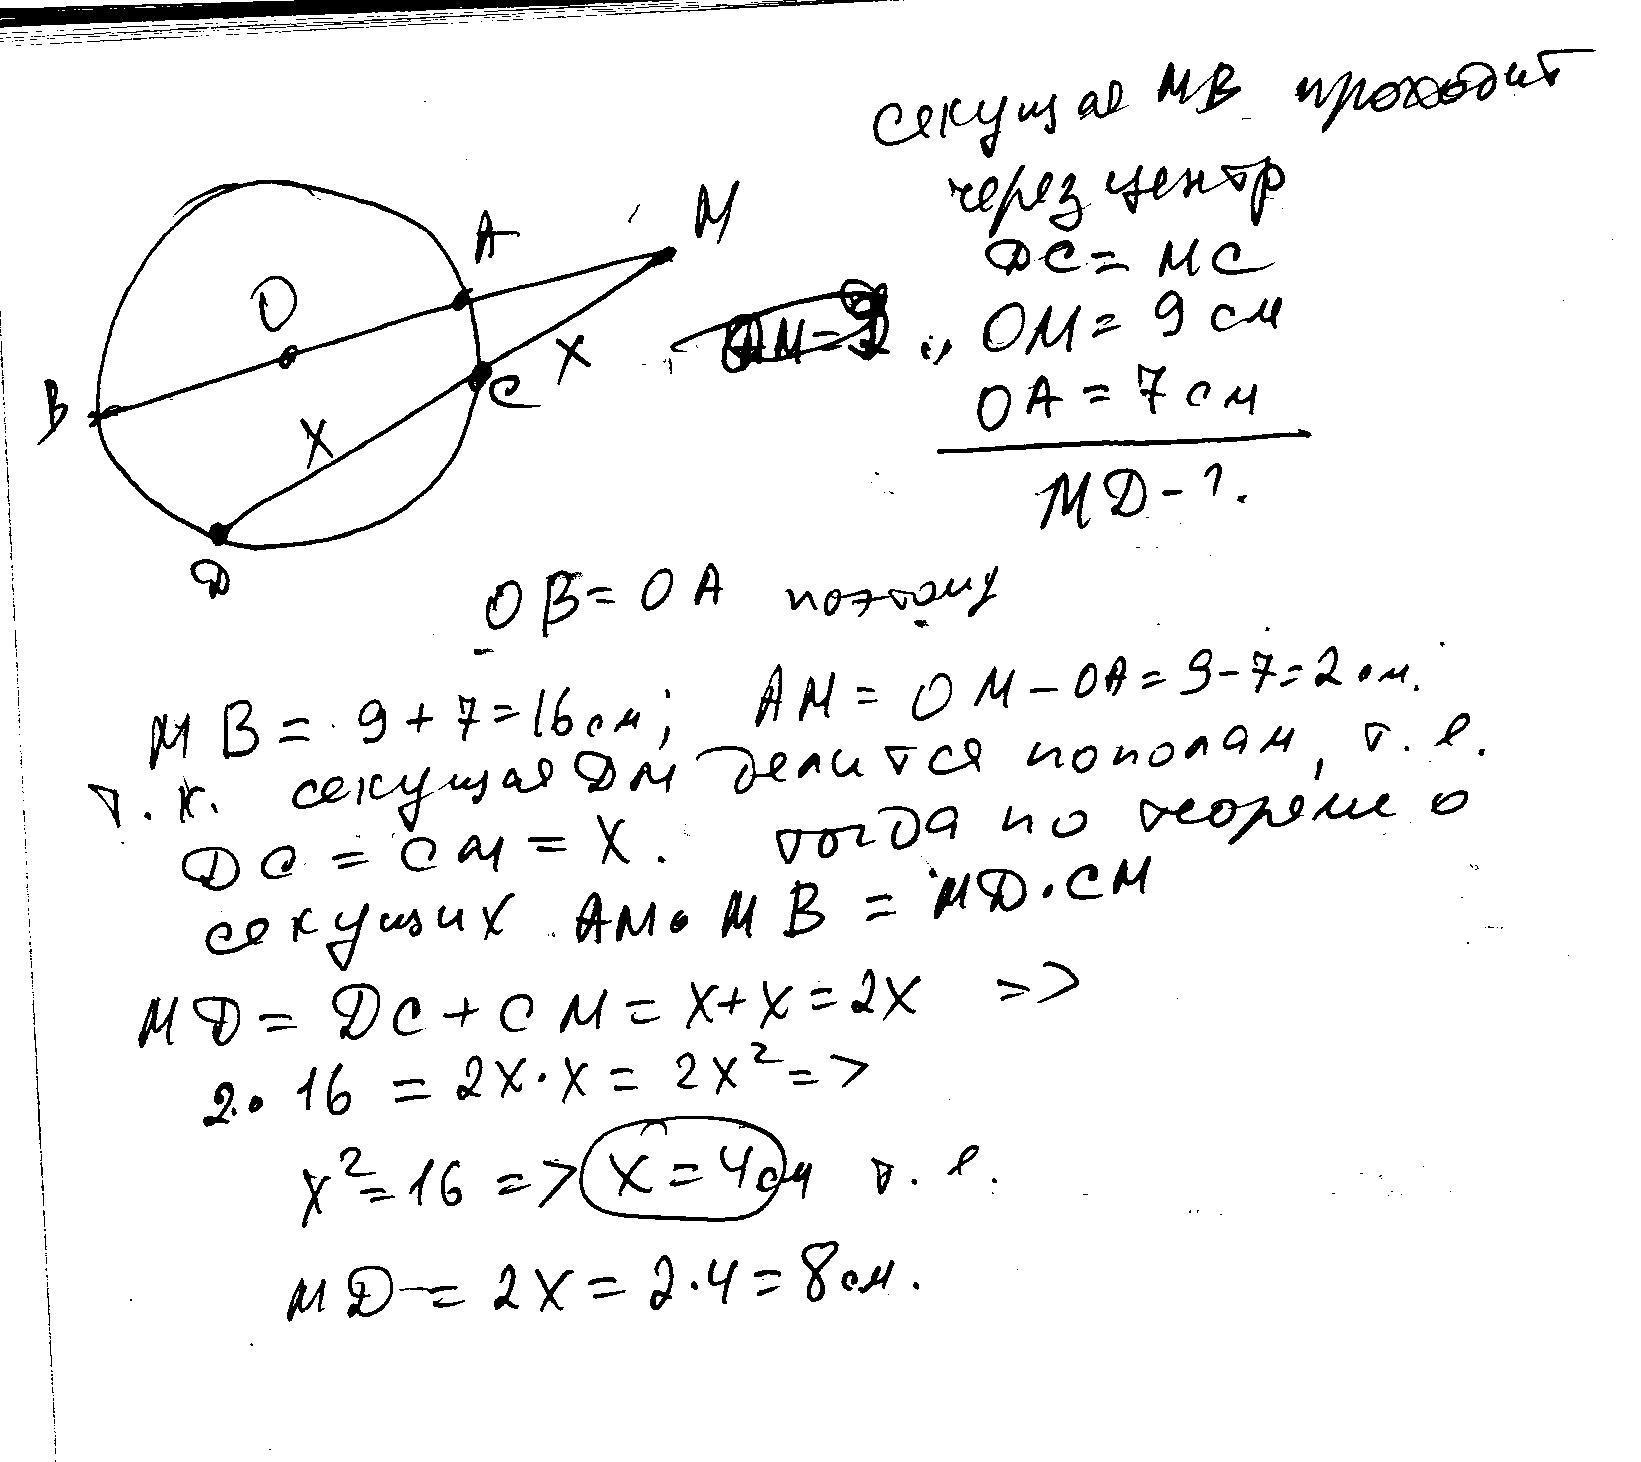 секущая МВ проходит
через центр
DC = MC
OM = 9 см
OA = 7 см
MD - ?.
A
M
O
B
X
C
X
D
OB = OA поэтому
MB = 9 + 7 = 16 см; AM = OM - OA = 9 - 7 = 2 см.
т.к. секущая DM делится пополам, т.е.
DC = CM = X. тогда по теореме о
секущих AM • MB = MD • CM
MD = DC + CM = X + X = 2X =>
2 • 16 = 2X • X = 2X² =>
X² = 16 => X = 4 см т.е.
MD = 2X = 2 • 4 = 8 см.